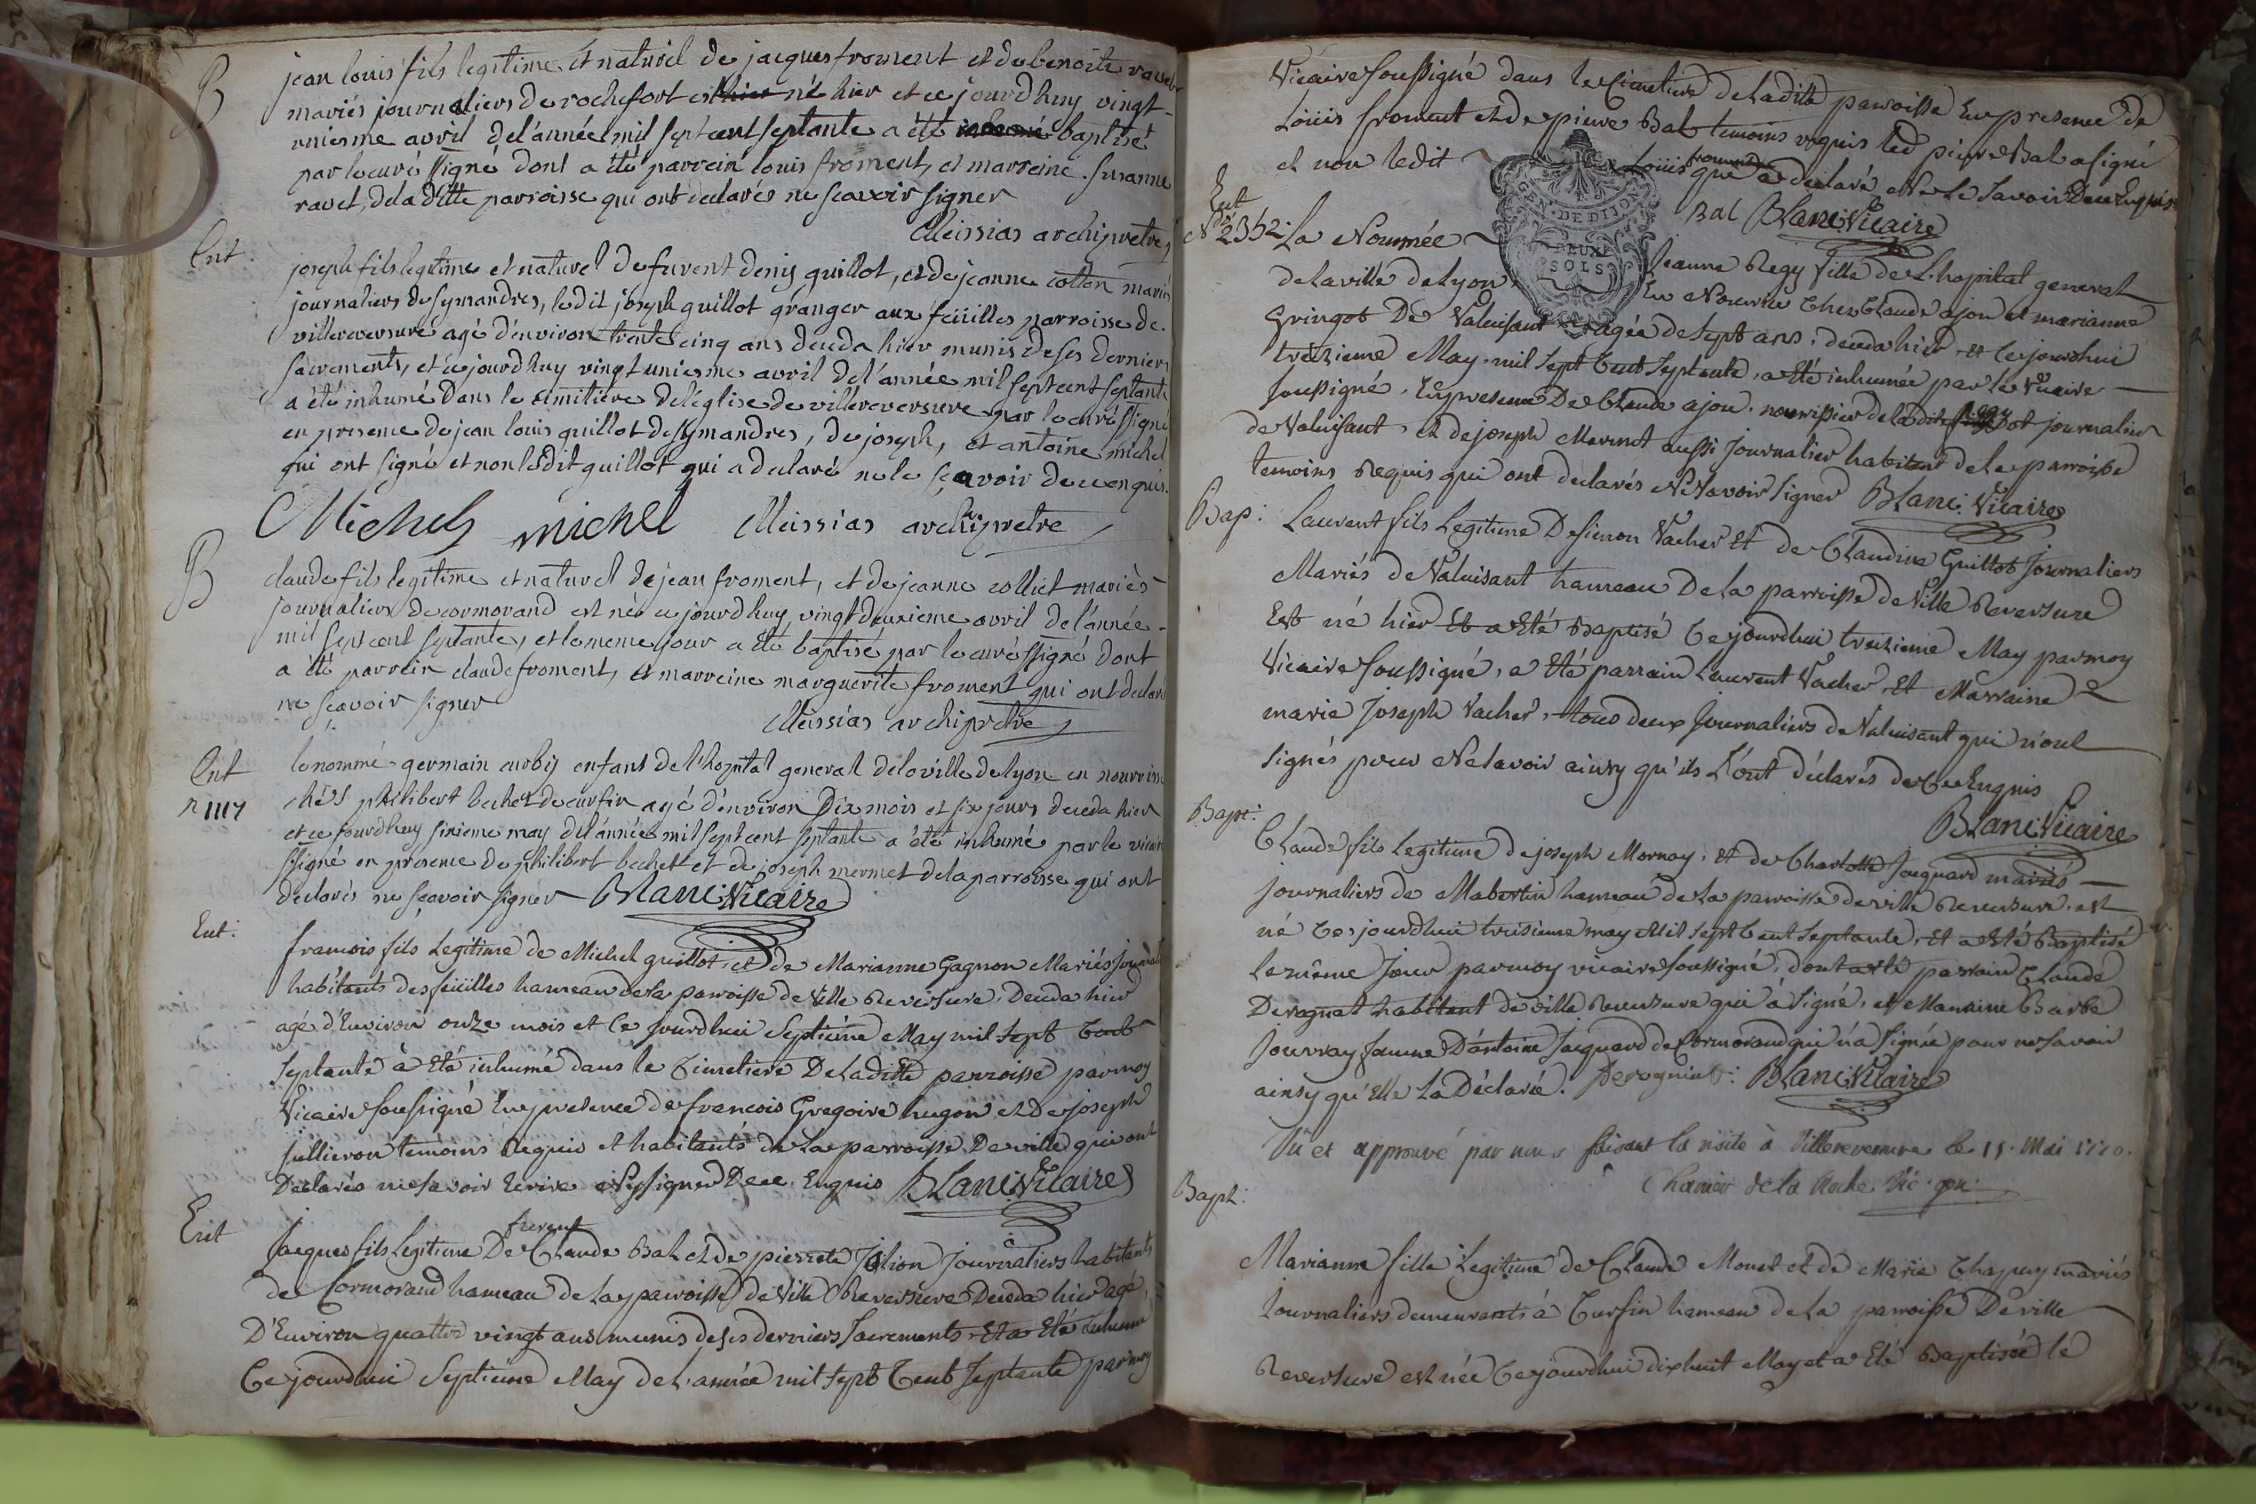 B
jean louis fils legitime et naturel de jacques froment et de benoite
mariés journaliers de rochefort est né hier et ce jourdhuy vingt
uniesme avril de l'année mil sept cent septante a été baptisé
par le curé ssigné dont a été parrein louis froment, et marreine Suzanne
ravet, de la ditte parroisse qui ont declarés ne scavoir signer
Meissias archipretre
Ent
joseph fils legitime et naturel de furent denis guillot, et de jeanne cotton mariés
journaliers de symandres, ledit joseph guillot granger aux feüilles parroisse de
villereversure agé d'environ trente cinq ans deceda hier munis de ses derniers
sacrements, et ce jourdhuy vingt uniesme avril de l'année mil sept cent septante
a été inhumé dans le cimitière de l'église de villereversure par le curé ssigné
en presence de jean louis guillot de symandres, de joseph, et antoine michel
qui ont signé et non ledit guillot qui a declaré ne le scavoir de ce enquis.
Michel michel Meissias archipretre
B
claude fils legitime et naturel de jean froment, et de jeanne colliet mariés
journaliers de cormorand est né ce jourdhuy vingt deuxieme avril de l'année
mil sept cent septante, et le meme jour a été baptisé par le curé ssigné dont
a été parrein claude froment, et marreine marguerite froment qui ont declaré
ne scavoir signer
Meissias archipretre
Ent
n 1117
le nommé germain enfant de l'hopital general de la ville de lyon en nourrisse
chés philibert bechet de curfin agé d'environ dix mois et six jours deceda hier
et ce jourdhuy sixieme may de l'année mil sept cent septante a été inhumé par le vicaire
ssigné en presence de philibert bechet et de joseph mermet de la parroisse qui ont
declarés ne scavoir signer Blanc Vicaire
Ent:
francois fils Legitime de Michel guillot, et de Marianne Gagnon Mariés
habitants des feüilles hameau de la paroisse de Ville Reversure, Deceda hier
agé d'Environ onze mois et Ce jourdhui Septiéme May mil Sept Cent
Septante à Eté inhumé dans le Cimetiere De Laditte parroisse parmoy
Vicaire Soussigné En presence de francois Gregoire hugon et De joseph
temoins Requis et habitants de La parroisse De ville qui ont
Declarés ne Savoir Ecrire Ny signer De ce Enquis Blanc Vicaire
Ent
furent
Jacques fils Legitime De Claude Bal et de pierrete Journaliers habitants
de Cormorand hameau de La paroisse de Ville Reversure Deceda hier agé
D'Environ quattre vingt ans munis de ses derniers Sacrements, Et a Eté Inhumé
Ce jourdhui Septiéme May de L'année mil Sept Cent Septante par moy
Vicaire Soussigné dans le Cimetiere de Laditte paroisse En presence de
Loüis froment et de pierre Bal temoins requis led pierre Bal a signé
et non ledit Loüis froment que a déclaré Ne Le Savoir De ce Enquis
Bal Blanc Vicaire
GEN. DE DIJON
DEUX
SOLS
Ent
N° 2352
La Nommée Jeanne Regy fille de L'hopital general
de la ville de Lyon En Nourrice Chez Claude ajou et marianne
Gringot De Valuisant agée de Sept ans, deceda hier et Ce jourdhui
treizieme May mil Sept Cent Septante, a Eté inhumée par le Vicaire
Soussigné, En presence De Claude ajou nourrissier de la dite Regy journalier
de Valuisant, et de joseph Mermet aussi Journalier habitant de la parroisse
temoins Requis qui ont declarés Ne Savoir signer Blanc Vicaire
Bap:
Laurent fils Legitime De simon Vacher Et de Claudine Guillot Journaliers
Mariés de Valuisant hameau De la parroisse de Ville Reversure
Est né hier Et a Eté Baptisé Ce jourdhui treizieme May parmoy
Vicaire Soussigné, a Eté parrain Laurent Vacher, Et Marraine
marie Joseph Vacher, tous deux Journaliers de Valuisant qui n'ont
signés pour Ne Savoir ainsy qu'ils L'ont déclarés de Ce Enquis
Blanc Vicaire
Bapt:
Claude fils Legitime de joseph Mornay, et de Charlotte Jacquard mariés
journaliers de Mabertin hameau de La paroisse de ville Reversure, est
né Ce jourdhui treisieme may Mil Sept Cent Septante, Et a Eté Baptisé
Le même Jour parmoy vicaire Soussigné, dont a été parrain Claude
Derognat habitant de ville Reversure qui à Signé, et Marraine Barbe
femme D'antoine Jacquard de Cormorand qui n'a Signée pour ne Savoir
ainsy qu'Elle La Déclaré. Derogniat: Blanc Vicaire
Vu et approuvé par nous faisant la visite à Villereversure le 15 Mai 1770.
de la Roche Vic. gen.
Bapt:
Marianne fille Legitime de Claude Monet et de Marie Chapuy mariés
Journaliers demeurants à Curfin hameau de La parroisse De ville
Reversure est née Ce jourdhui dixhuit May et a Eté Baptisée le